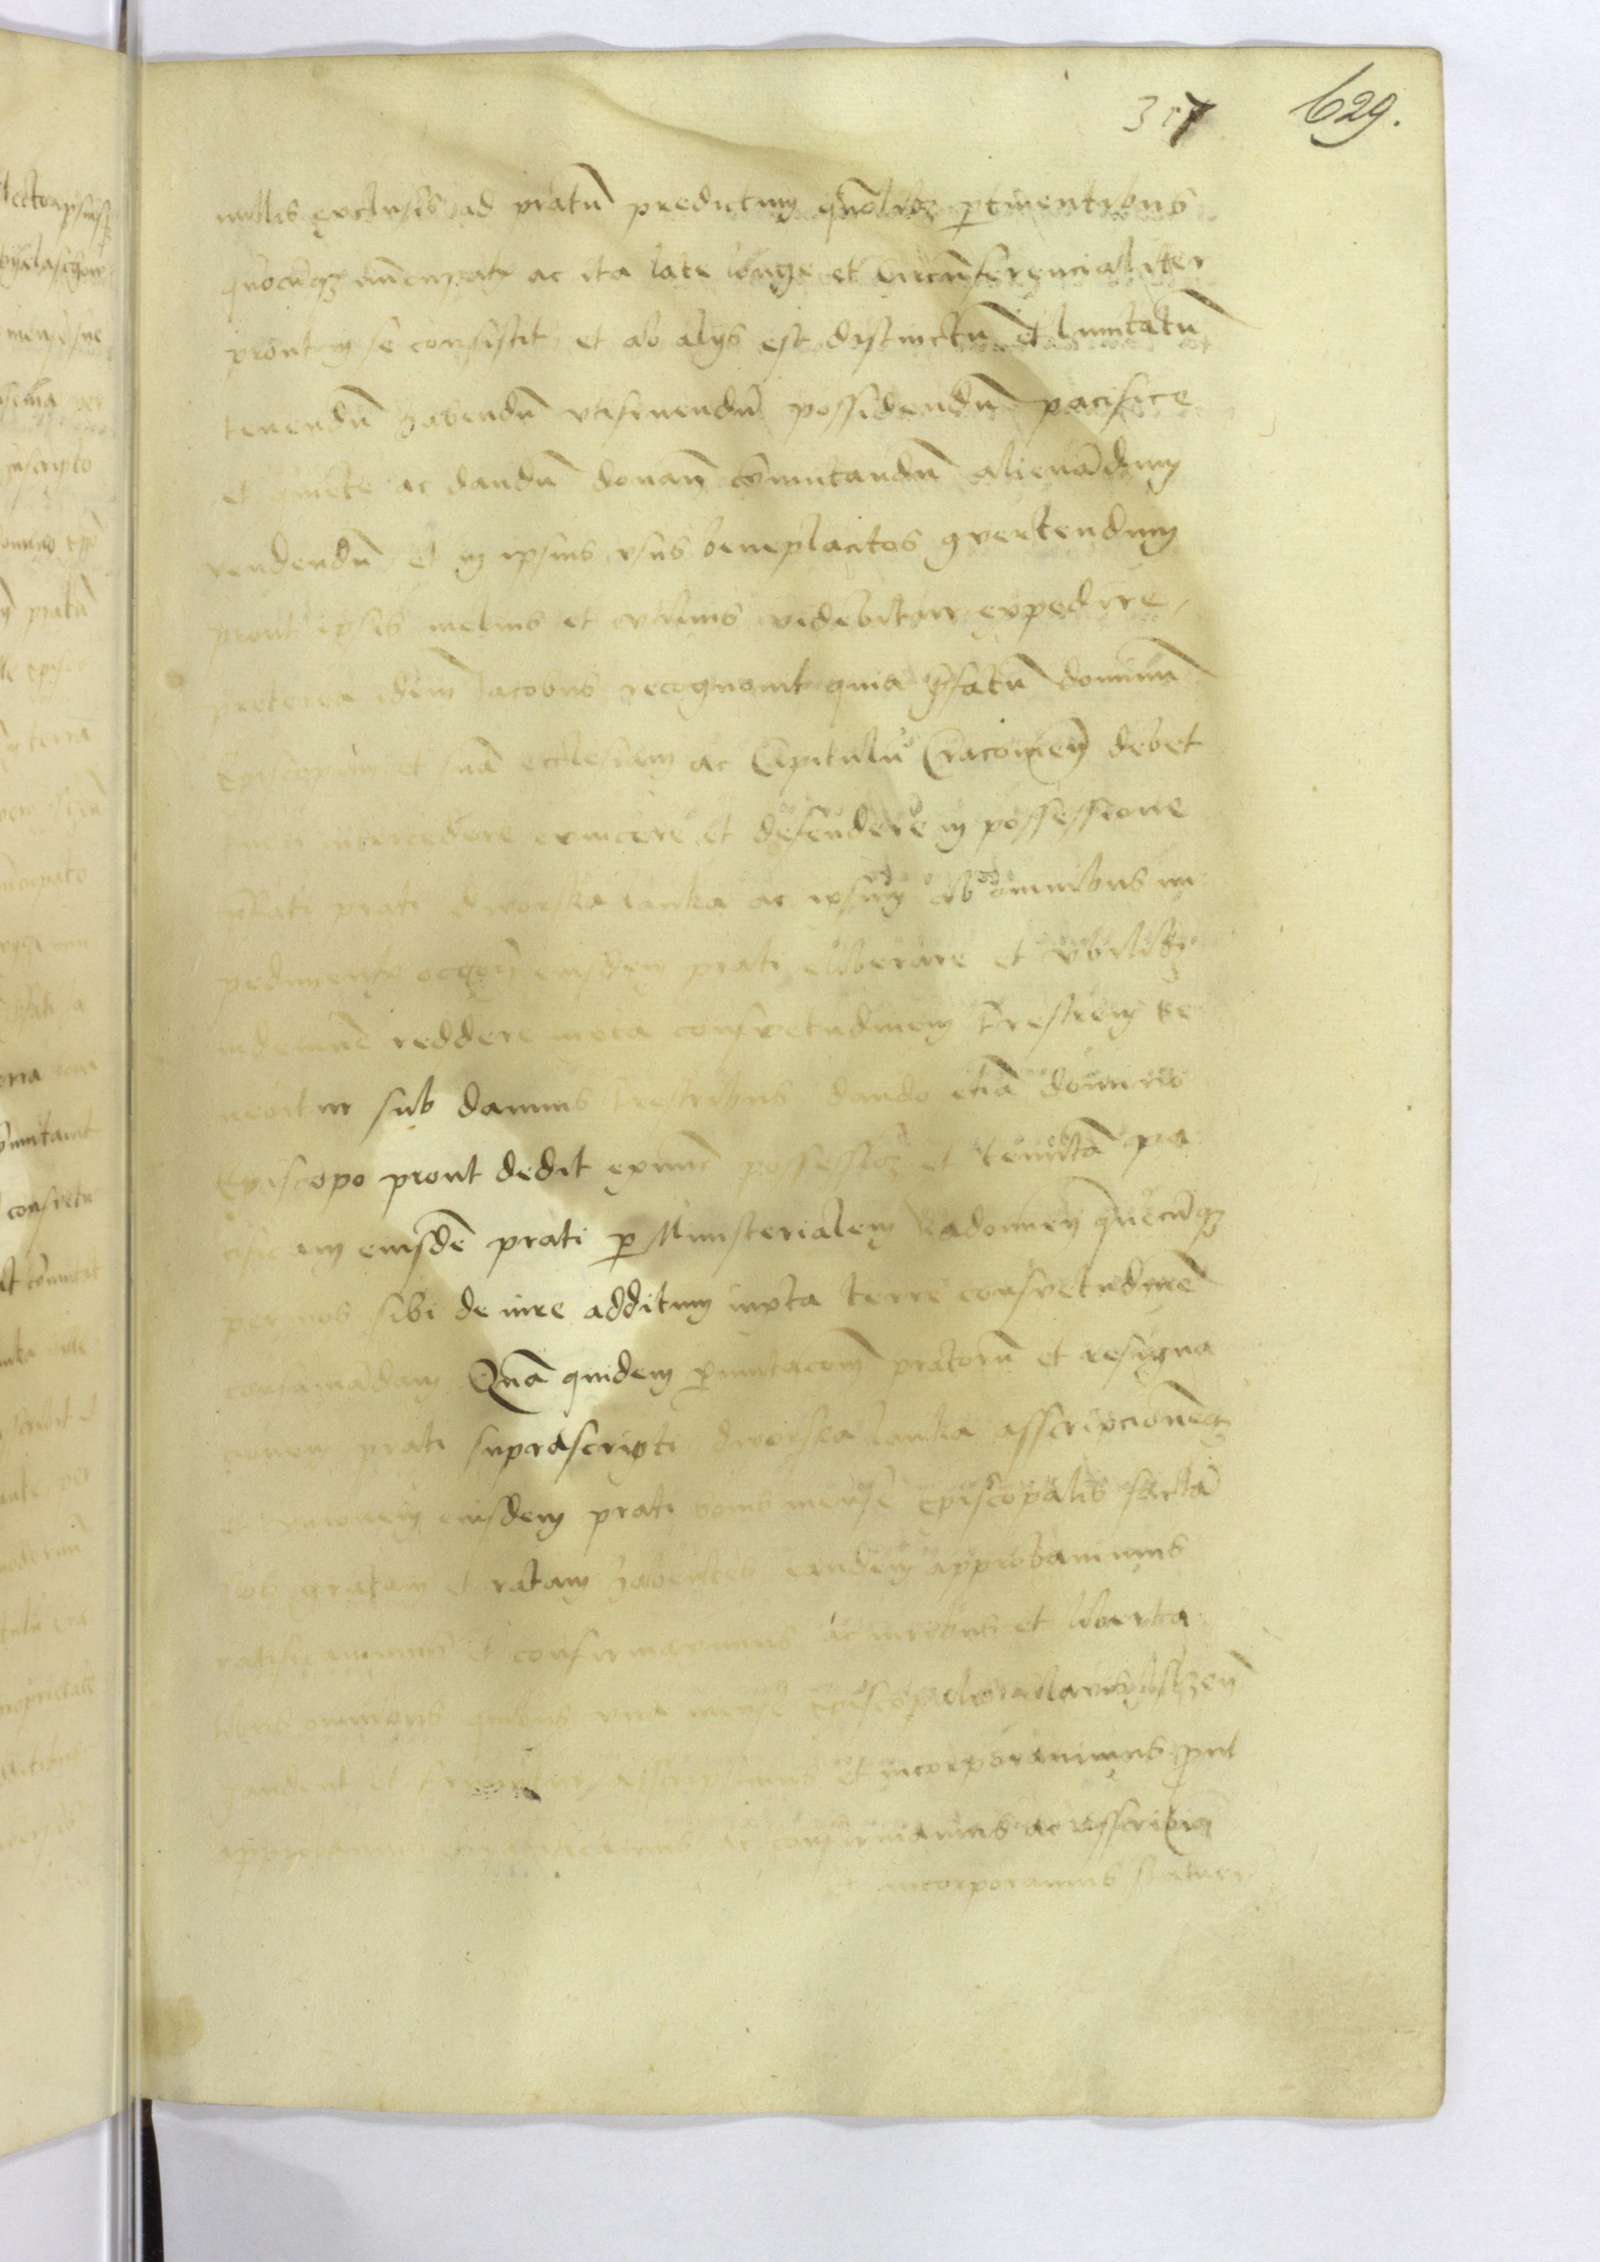 317 629.
nullis exclusis ad pratũ predictum qũolibʒ ꝑtinentibus
quocũqʒ nũcupatis ac ita late longe et Circũferencialiter
prout in se consistit et ab alys est distinctũ et limitatũ
tenendũ habendũ utifruendũ possidendũ pacifice
et quiete ac dandũ donanð cõmutandũ alienãdum
vendendũ et in ipsius usus beneplacitos ꝯvertendum
prout ipsis melius et utilius videbitur expedire
preterea idem Jacobus recognovit quia p̃fatũ dominũ
Episcopum et suã ecclesiam ac Capitulũ Cracovien̄ debet
tueri intercedere evincere et defendere in possessione
p̃fati prati dworska lanka ac ipsum ab omnibus im
pedimentis eiusdem prati eliberare et ubilibʒ
indemnẽ reddere iuxta consvetudinem t̃restrem te
nebitur sub damnis t̃restribus dando etiã domino
Episcopo prout dedit exnunc possessioʒ et tenutã pa
cificam eiusdẽ prati ꝑ Ministerialem Radomien̄ quẽcũqʒ
per nos sibi de iure additum iuxta terre consvetudinẽ
Quã quidem ꝑmutacoñem pratorũ et resigna
cionem prati suprascripti dworska lanka asscripcionẽqʒ
et unionem eiusdem prati bonis mense Episcopalis factã
nos gratam et ratam habentes eandem approbavimus
ratificavimus et confirmavimus ac iuribus et liberta
tibus omnibus quibus una mense Episcopalis
gaudent et asscripsimus et incorporavimus prñt
approbamus ratificamus ac confirmamus ac asscribim̃
et incorporamus